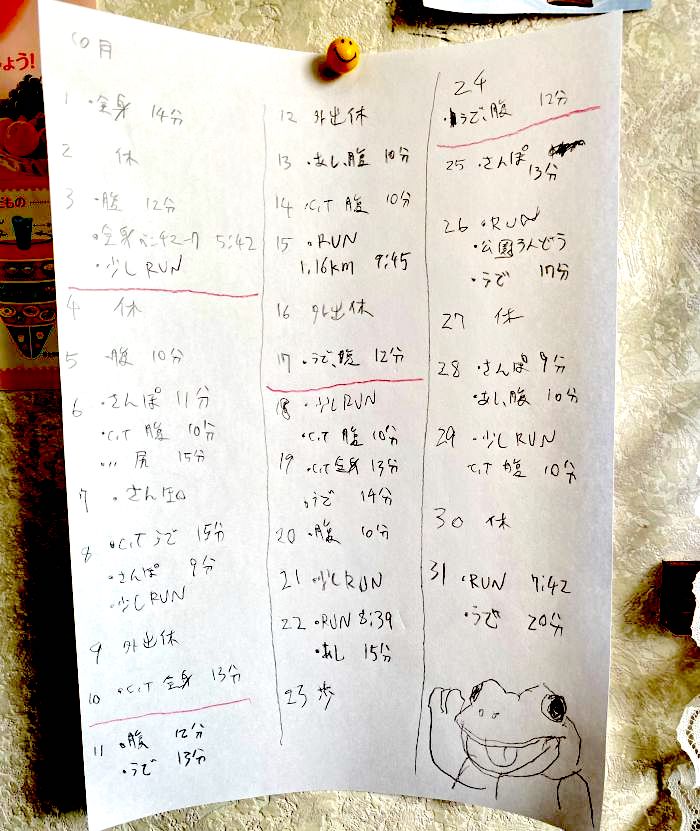 10月
1 ・全身 14分
2 休
3 ・腹 12分
・全身 5:42
・少しRUN
4 休
5 ・腹 10分
6 ・さんぽ 11分
・C.T 腹 10分
・〃 尻 15分
7 ・さんぽ
8 ・C.T うで 15分
・さんぽ 9分
・少しRUN
9 外出休
10 ・C.T 全身 13分
11 ・腹 12分
・うで 13分
12 外出休
13 ・あし、腹 10分
14 ・C.T 腹 10分
15 ・RUN
1.16km 9:45
16 外出休
17 ・うで、腹 12分
18 ・少しRUN
・C.T 腹 10分
19 ・C.T 全身 13分
・うで 14分
20 ・腹 10分
21 ・少しRUN
22 ・RUN 8:39
・あし 15分
23 歩
24
・うで、腹 12分
25 ・さんぽ
13分
26 ・RUN
・公園うんどう
・うで 17分
27 休
28 ・さんぽ 9分
・あし、腹 10分
29 ・少しRUN
C.T 腹 10分
30 休
31 ・RUN 7:42
・うで 20分
ょう!
だもの